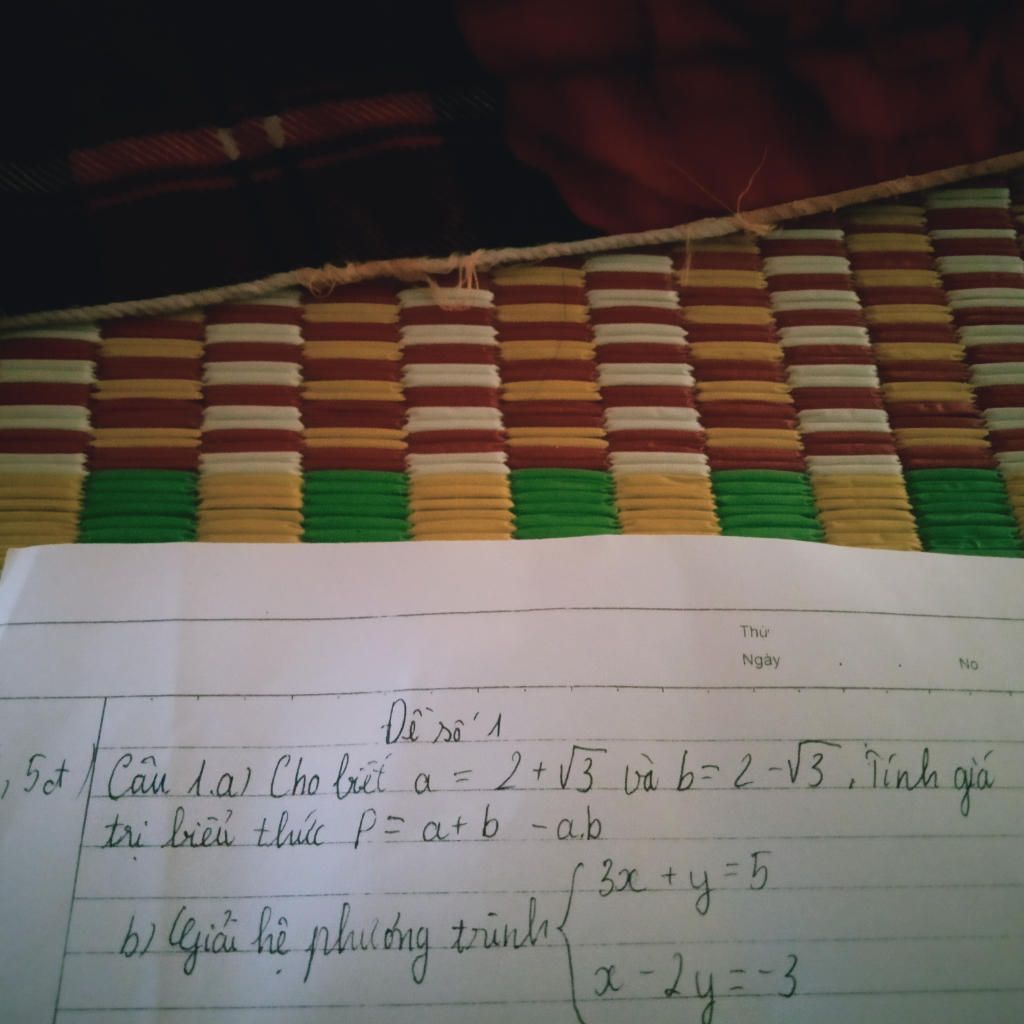 Thứ
Ngày . . No
Đề số 1
, 5đ Câu 1.a) Cho biết a = 2 + √3 và b = 2 - √3 . Tính giá
trị biểu thức P = a + b - a.b
b) Giải hệ phương trình { 3x + y = 5
x - 2y = -3